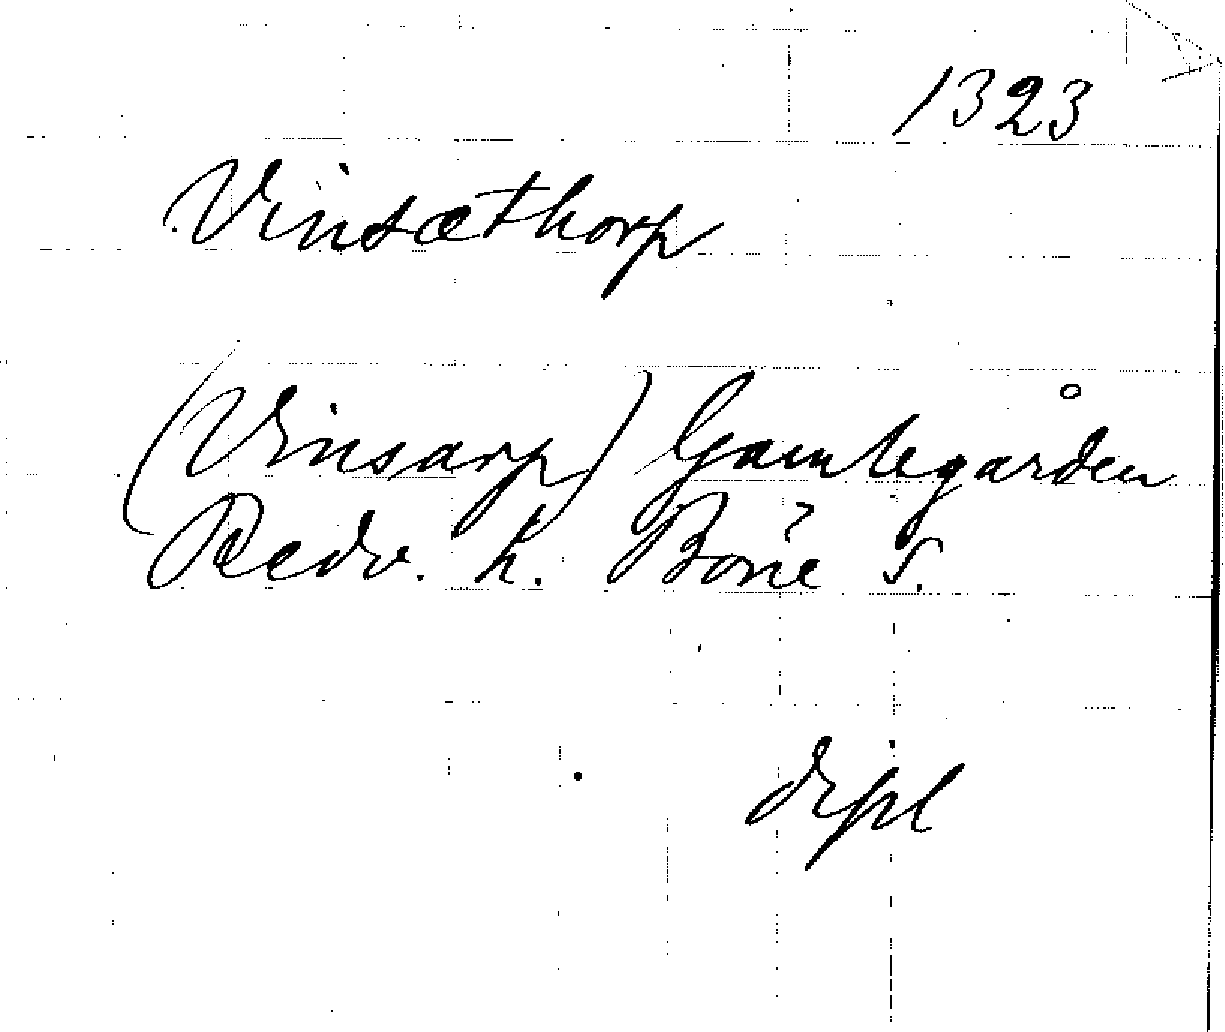 1323
Vinsæthorp
(Vinsarp) Gamlegården
Redv. h. Böne S.
dipl